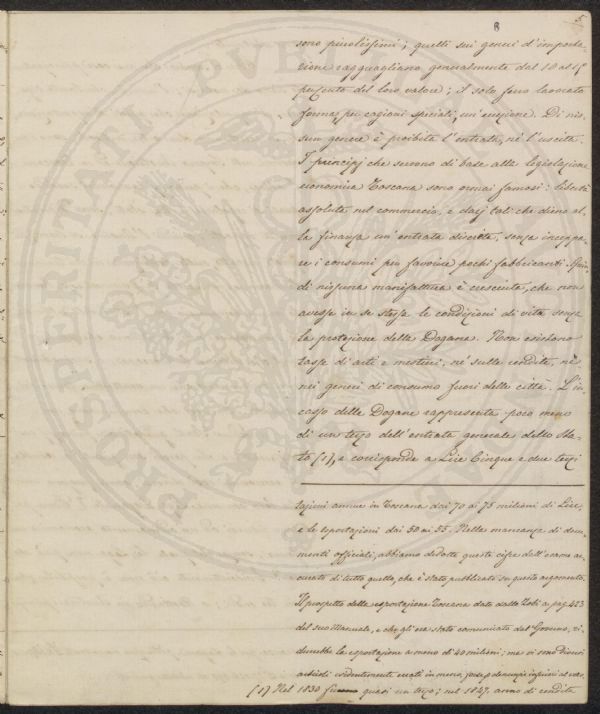 8
5
sono piccolissimi; quelli sui generi d'importa-
zione ragguagliano generalmente dal 10 al 15
percento del loro valore; il solo ferro lavorato
forma, per cagioni speciali, un'eccezione. Di nis-
sun genere è proibita l'entrata, nè l'uscita.
I principj che servono di base alla legislazione
economica Toscana sono omai famosi: libertà
assoluta nel commercio, e dazj tali che diano al-
la finanza un'entrata discreta, senza inceppa-
re i consumi per favorire pochi fabbricanti. Quin-
di nissuna manifattura è cresciuta, che non
avesse in se stessa le condizioni di vita senza
la protezione della Dogana. Non esistono
tasse di arti e mestieri, nè sulle rendite, nè
nei generi di consumo fuori delle città. L'in-
casso delle Dogane rappresenta poco meno
di un terzo dell'entrata generale dello Sta-
to (1), e corrisponde a Lire Cinque e due terzi
tazioni annue in Toscana dai 70 ai 75 milioni di Lire,
e le esportazioni dai 50 ai 55. Nella mancanza di docu-
menti officiali, abbiamo dedotte queste cifre dall'esame ac-
curato di tutto quello, che è stato pubblicato su questo argomento.
Il prospetto delle esportazione Toscana dato dallo Zobi a pag. 423
del suo Manuale, e che gli era stato comunicato dal Governo, ri-
durrebbe la esportazione a meno di 40 milioni; ma vi sono diversi
articoli evidentemente errati in meno,
(1) Nel 1830 quasi un terzo; nel 1847, anno di rendite
PROSPERITATI PVBLICAE